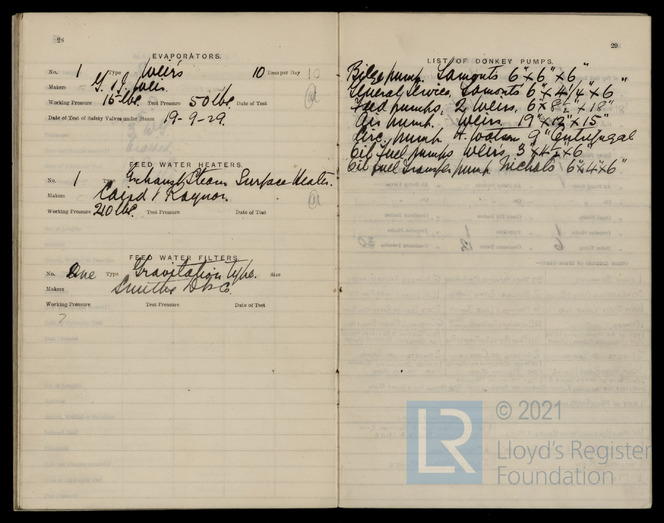 28
EVAPORATORS.
No. 1 Type Weirs 10 Tons per Day 10
Makers G. & J. Weir.
Working Pressure 15 lbs. Test Pressure 50 lbs. Date of Test
Date of Test of Safety Valves under Steam 19-9-29.
FEED WATER HEATERS.
No. 1 Type Exhaust Steam Surface Heater.
Makers Caird & Raynor.
Working Pressure 210 lbs. Test Pressure Date of Test
FEED WATER FILTERS.
No. One Type Gravitation type. Size
Makers
Working Pressure Test Pressure Date of Test
?
29
LIST OF DONKEY PUMPS.
Bilge pump. Lamonts 6" x 6" x 6"
General Service, Lamonts 6" x 4¼" x 6"
Feed pumps, 2 Weirs. 6" x 8½" x 18"
Air pump. Weirs. 19" x 15"
Circ. pump W. Watson 9" Centrifugal
Oil fuel pumps Weirs, 3" x 4½" x 6"
Oil fuel Transfer pump Nichols 6" x 4" x 6"
LR © 2021
Lloyd's Register
Foundation